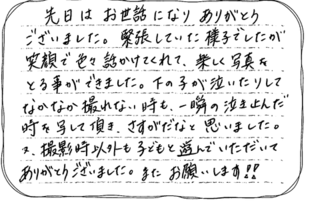 先日は お世話になり ありがとう
ございました。緊張していた様子でしたが
笑顔で色々話かけてくれて、楽しく写真を
とる事ができました。下の子が泣いたりして
なかなか撮れない時も、一瞬の泣き止んだ
時を写して頂き、さすがだなと思いました。
又、撮影時以外も子どもと遊んでいただいて
ありがとうございました。また お願いします!!